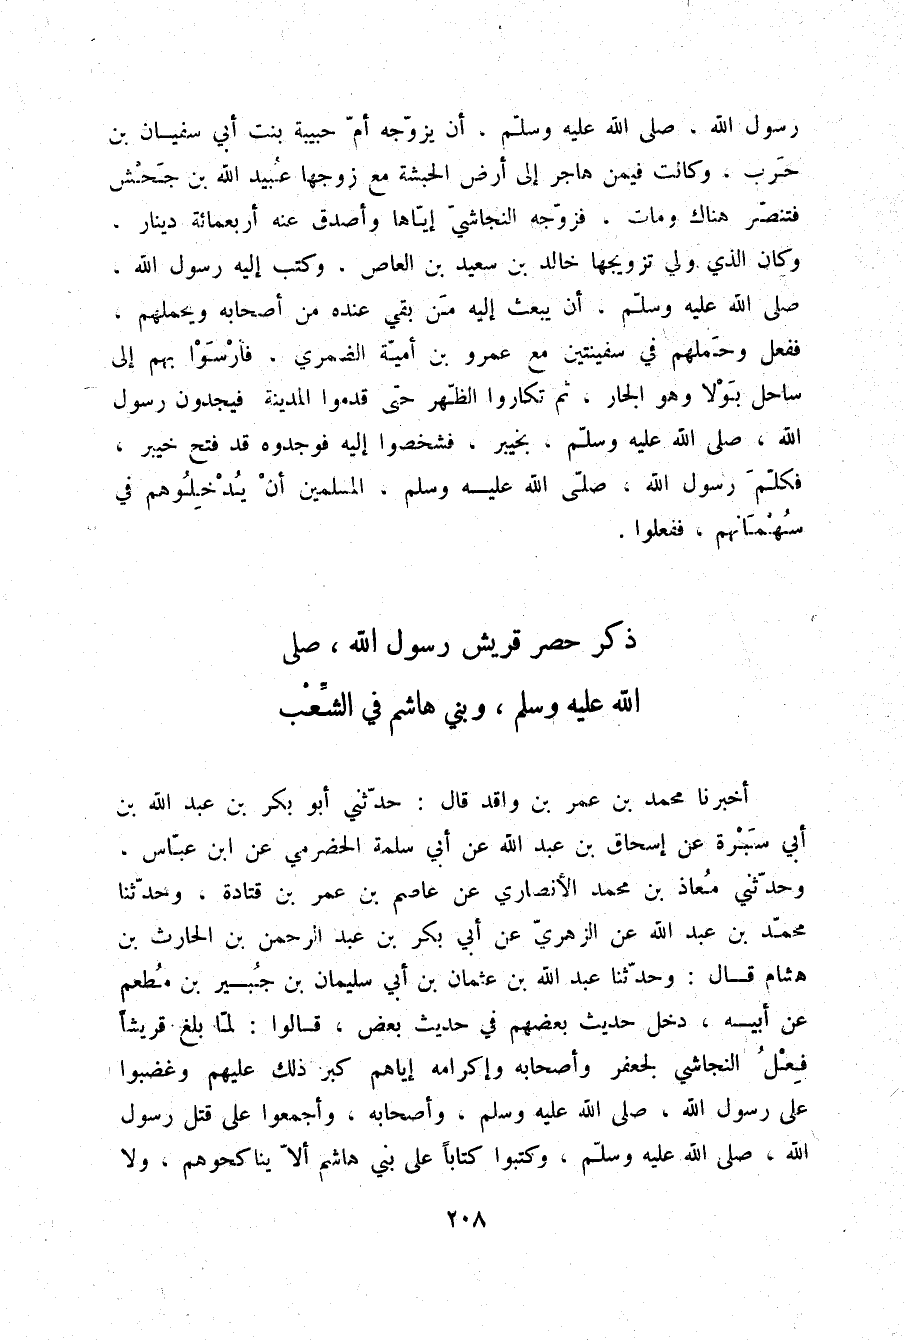 رسول الله ، صلى الله عليه وسلّم ، أن يزوّجه أمّ حبيبة بنت أبي سفيان بن
حَرب ، وكانت فيمن هاجر إلى أرض الحبشة مع زوجها عُبيد الله بن جَحْش
فتنصّر هناك ومات . فزوّجه النجاشيّ إيّاها وأصدق عنه أربعمائة دينار .
وكان الذي ولي تزويجها خالد بن سعيد بن العاص . وكتب إليه رسول الله ،
صلى الله عليه وسلّم ، أن يبعث إليه مَن بقي عنده من أصحابه ويحملهم ،
ففعل وحَملهم في سفينتين مع عمرو بن أميّة الضمري . فأرْسَوْا بهم إلى
ساحل بَوْلا وهو الجار ، ثم تكاروا الظّهر حتّى قدموا المدينة فيجدون رسول
الله ، صلى الله عليه وسلّم ، بخيبر . فشخصوا إليه فوجدوه قد فتح خيبر ،
فكلّمَ رسول الله ، صلّى الله عليه وسلم ، المسلمين أنْ يُدْخِلُوهم في
سُهْمَانهم ، ففعلوا .
ذكر حصر قريش رسول الله ، صلى
الله عليه وسلم ، وبني هاشم في الشِّعْب
أخبرنا محمد بن عمر بن واقد قال : حدّثني أبو بكر بن عبد الله بن
أبي سَبْرة عن إسحاق بن عبد الله عن أبي سلمة الحضرمي عن ابن عبّاس .
وحدّثني مُعاذ بن محمد الأنصاري عن عاصم بن عمر بن قتادة . وحدّثنا
محمّد بن عبد الله عن الزهريّ عن أبي بكر بن عبد الرحمن بن الحارث بن
هشام قال : وحدّثنا عبد الله بن عثمان بن أبي سليمان بن جُبير بن مُطعم
عن أبيه ، دخل حديث بعضهم في حديث بعض ، قالوا : لمّا بلغ قريشاً
فِعْلُ النجاشي لجعفر وأصحابه وإكرامه إياهم كبر ذلك عليهم وغضبوا
على رسول الله ، صلى الله عليه وسلم ، وأصحابه ، وأجمعوا على قتل رسول
الله ، صلى الله عليه وسلّم ، وكتبوا كتاباً على بني هاشم ألاّ يناكحوهم ، ولا
٢٠٨